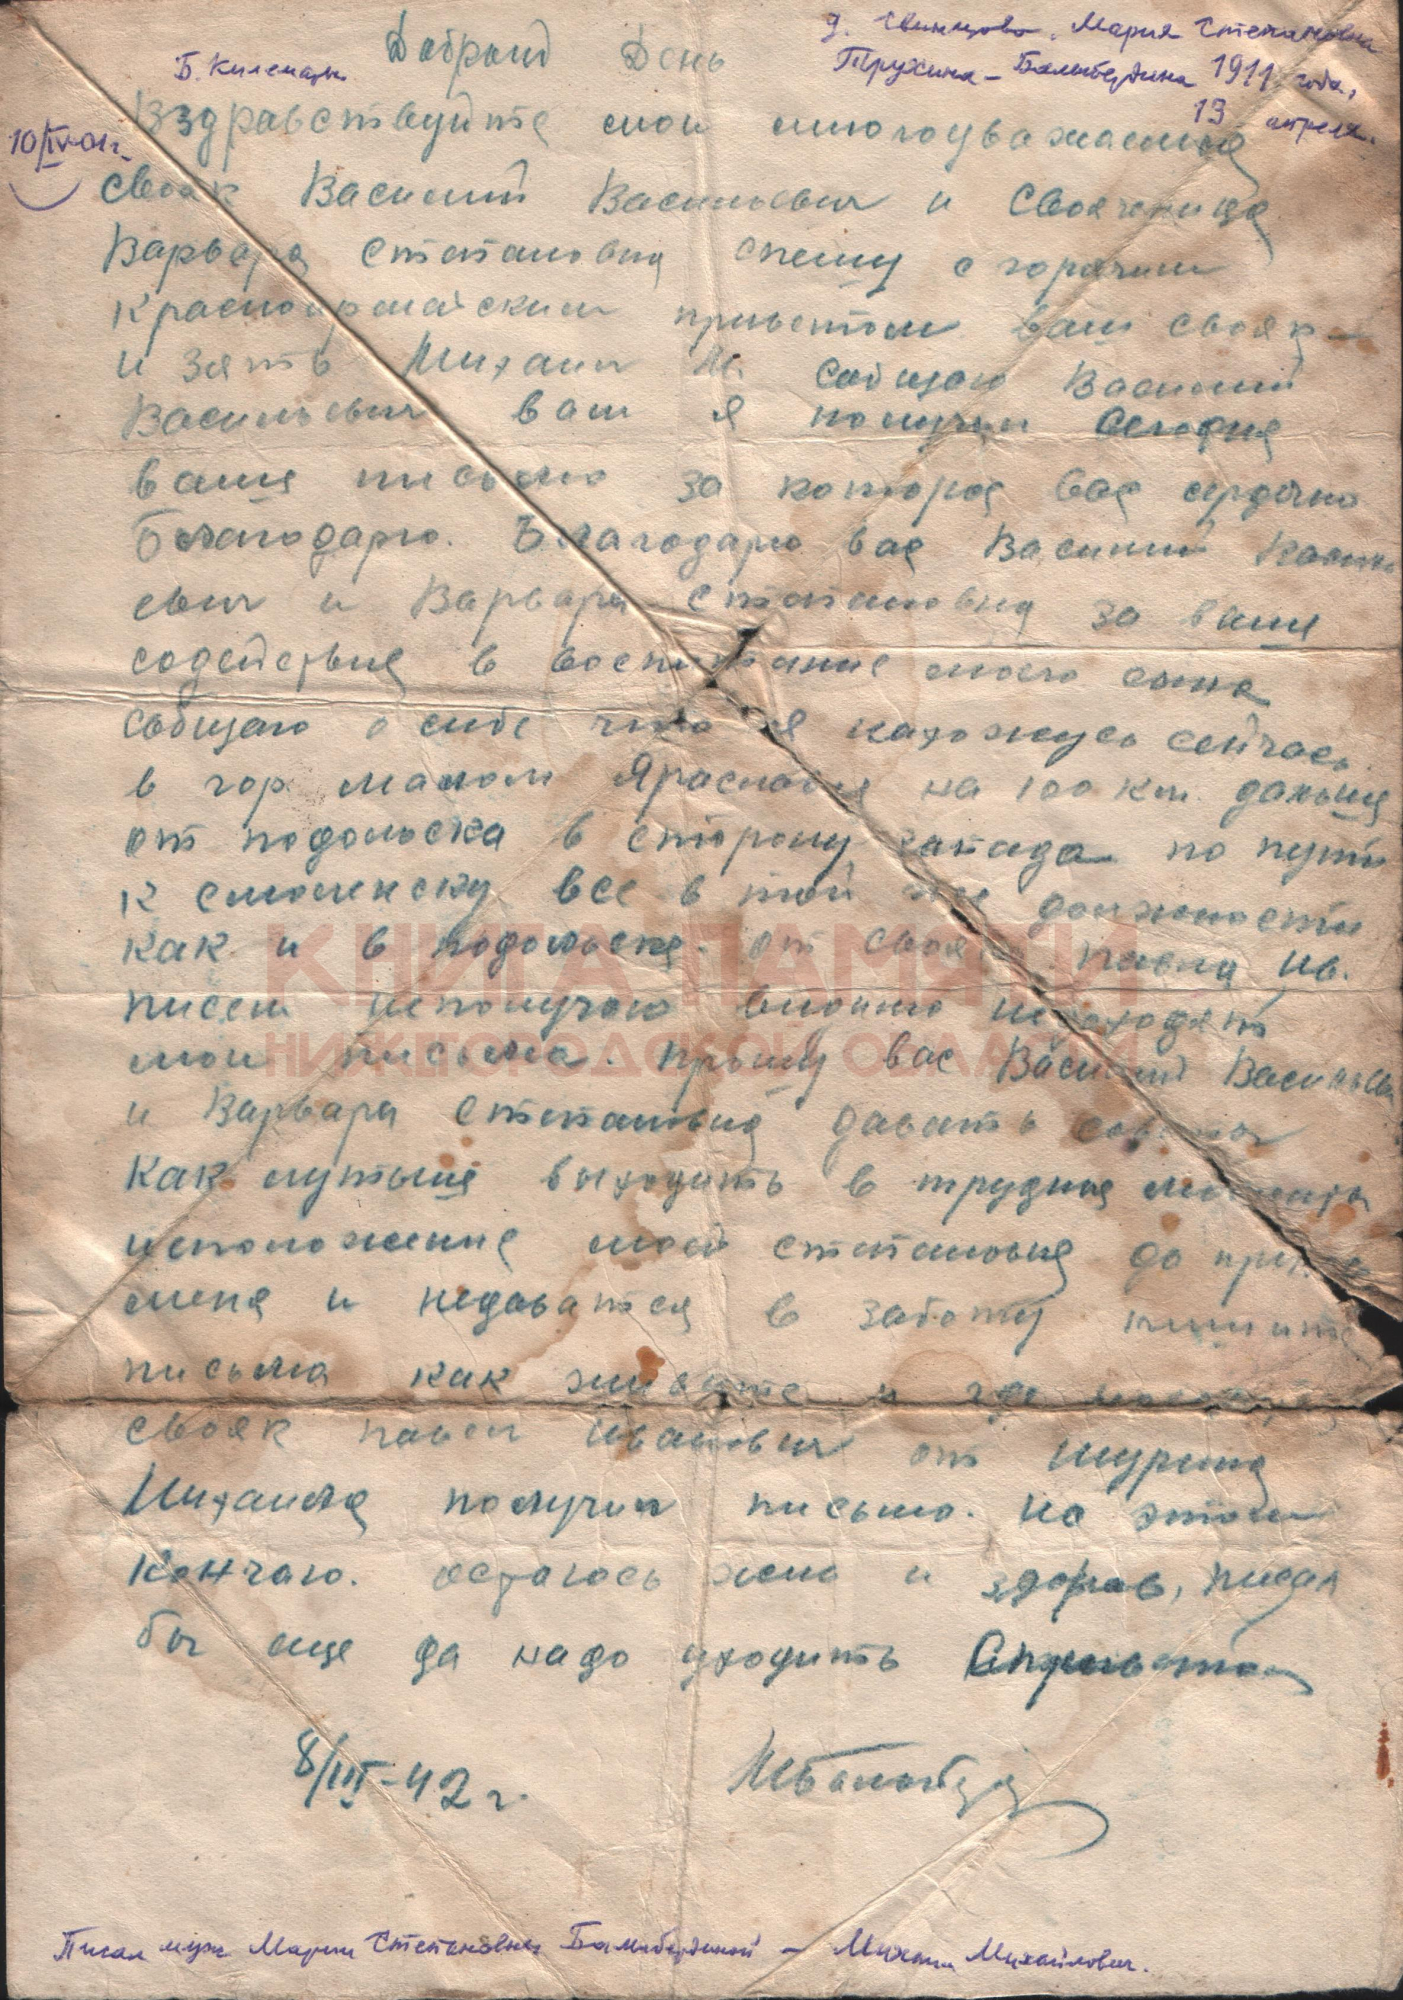 д. Свинцово. Мария Степановна
Добрый День
Б. Килемары
Трухина – Балыбердина 1911 года,
13 апреля.
10/IV-01г.
Вздравствуйте мои многоуважаемыя
свояк Василий Васильевич и Своячница
Варвара Степановна спешу с горячим
красноармейским приветом ваш свояк
и зять Михаил М. Сообщаю Василий
Васильевич вам я получил Сегодня
ваше письмо за которое вас сердечно
благодарю. Благодарю вас Василий Василь
евич и Варвара Степановна за ваше
содействие в воспитание моего сына
сообщаю о себе что я нахожусь сейчас
в гор малом Ярославце на 100 км. дальше
от подольска в сторону запада по пути
к смоленску все в той же должности
как и в подольске. от свояка Павла Ив.
писем неполучаю видимо недоходят
мои письма. прошу вас Василий Василье
и Варвара Степановна давать советы
как лутьше выходить в трудные моменты
исположение моей степановне до
меня и недаватся в заботу пишите
письма как живете и где
свояк павел иванович от шурина
Михаила получил письмо. на этом
кончаю. остаюсь жив и здоров, писал
бы еще да надо уходить Сприветом
8/III-42 г.
Писал муж Марии Степановны Балыбердиной – Михаил Михайлович.
КНИГА ПАМЯТИ
НИЖЕГОРОДСКОЙ ОБЛАСТИ